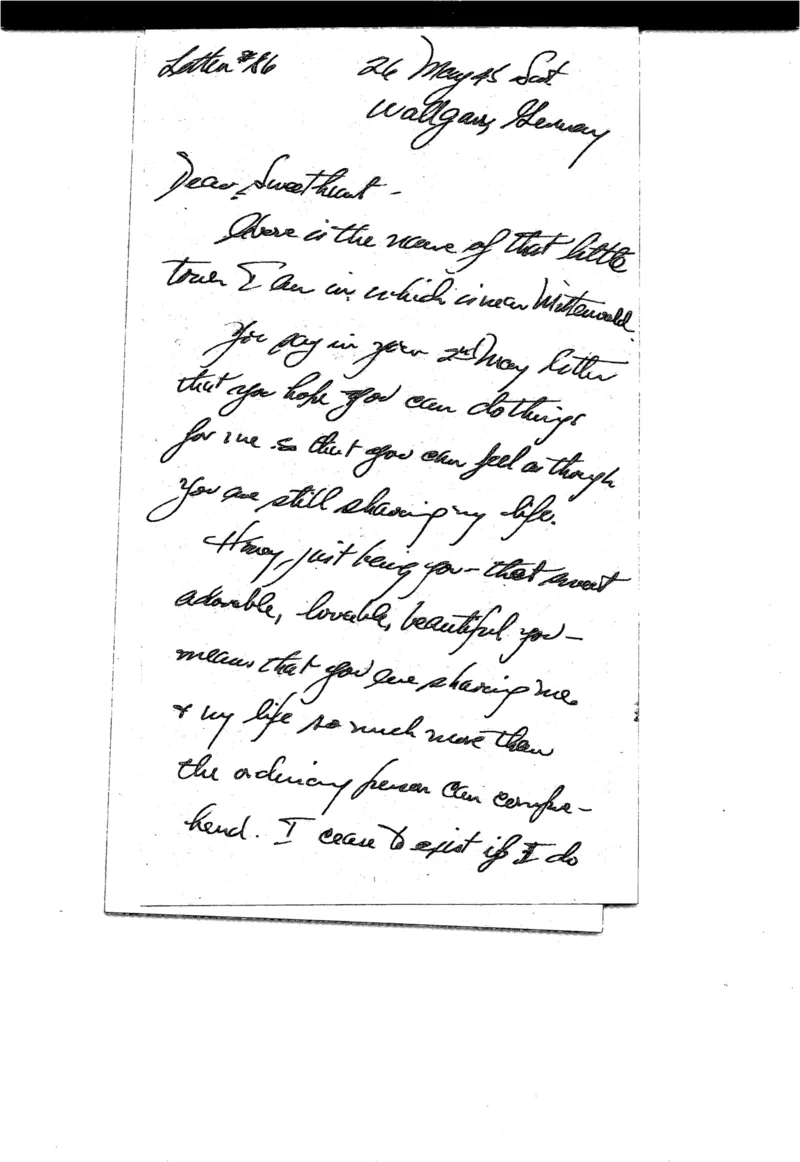 Letter #86 26 May 45 Sat
Wallgau, Germany
Dear Sweetheart -
Above is the name of that little
town I am in, which is near Mittenwald.
You say in your 2nd May letter
that you hope you can do things
for me so that you can feel as though
you are still sharing my life.
Honey, just being you - that sweet
adorable, loveable, beautiful you -
means that you are sharing me
& my life so much more than
the ordinary person can compre-
hend. I cease to exist if I do